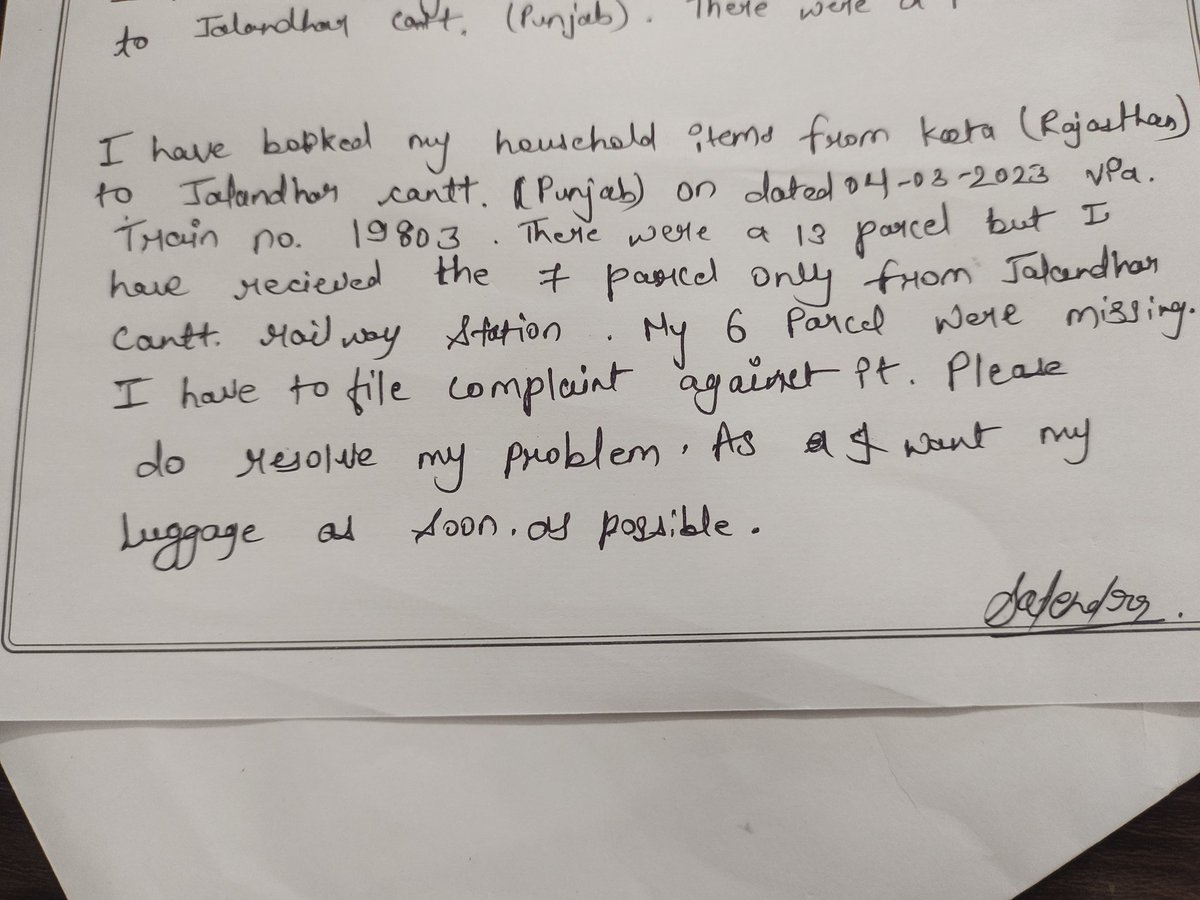 to Jalandhar cantt. (Punjab). There were a
I have booked my household items from kota (Rajasthan)
to Jalandhar cantt. (Punjab) on dated 04-03-2023 vPa.
Train no. 19803. There were a 13 parcel but I
have recieved the 7 parcel only from Jalandhar
Cantt. railway Station. My 6 Parcel were missing.
I have to file complaint against it. Please
do resolve my problem. As I want my
Luggage as soon. as possible.